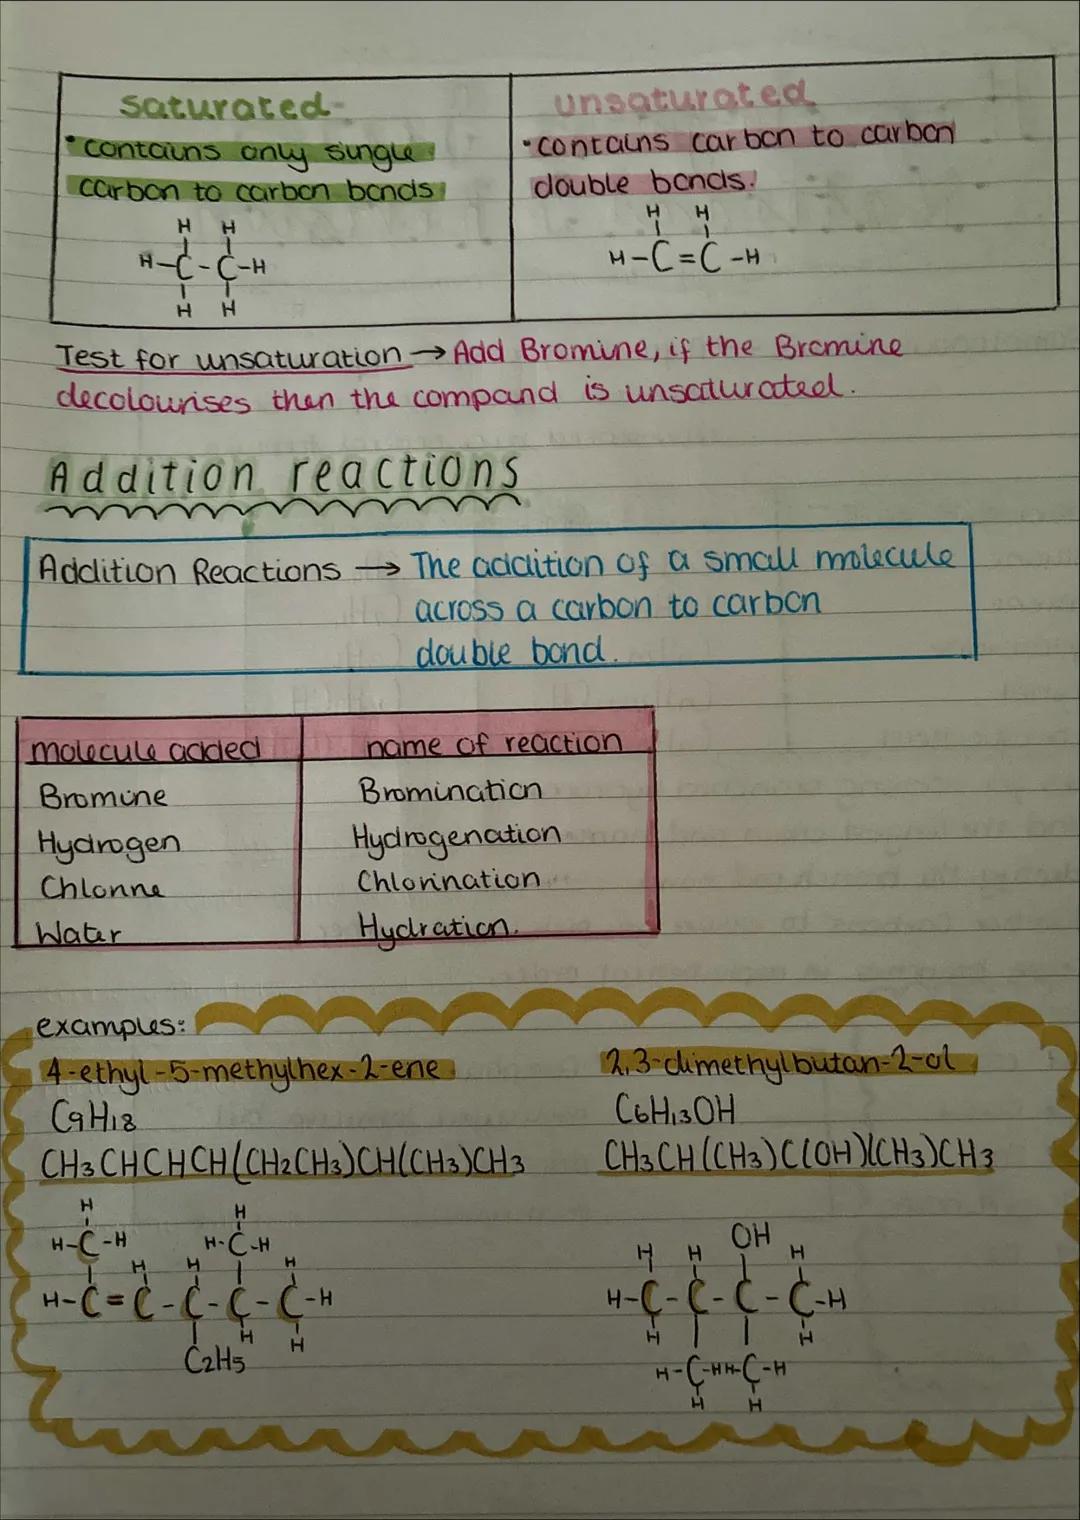 saturated
• contains only single
carbon to carbon bonds
H H
H-C-C-H
H H
unsaturated
• contains carbon to carbon
double bonds.
H H
H-C=C-H
Test for unsaturation → Add Bromine, if the Bromine
decolourises then the compound is unsaturated.
Addition reactions
Addition Reactions → The addition of a small molecule
across a carbon to carbon
double bond.
molecule added name of reaction
Bromine Bromination
Hydrogen Hydrogenation
Chlorine Chlorination
Water Hydration.
examples:
4-ethyl-5-methylhex-2-ene
C9H18
CH3CHCHCH(CH2CH3)CH(CH3)CH3
H H
H-C-H H-C-H
H H H
H-C=C-C-C-C-H
H H
C2H5
2,3-dimethylbutan-2-ol
C6H13OH
CH3CH(CH3)C(OH)(CH3)CH3
OH
H H H
H-C-C-C-C-H
H H
H-C-HH-C-H
H H